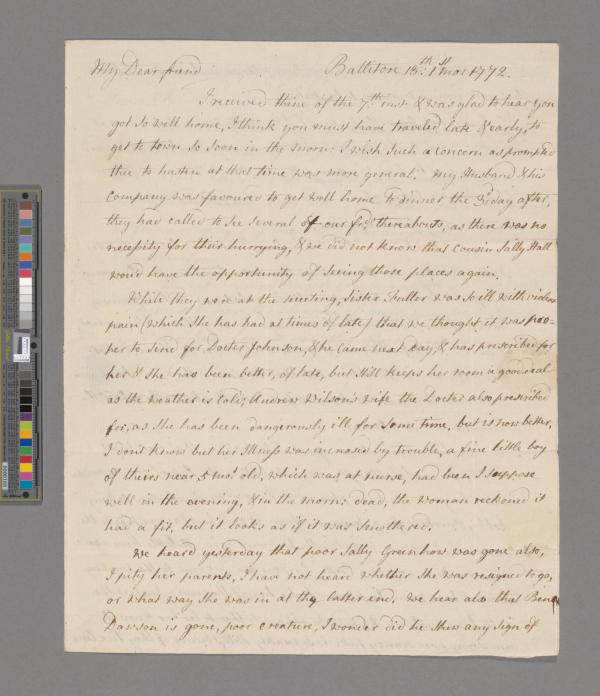 My Dear friend Balliton 13th 1st mo: 1772.
I received thine of the 7th inst & was glad to hear you
got so well home, I think you must have traveled late & early, to
get to town so soon in the morn: I wish such a concern as prompted
thee to hasten at that time was more general. my Husband & his
Company was favoured to get well home to dinner the 3d day after,
they had called to see several of our frds thereabouts, as there was no
necessity for their hurrying, & we did not know that Cousin Sally Hall
woud have the opportunity of seeing those places again.
While they were at the meeting, Sister Fuller was so ill with violent
pain (which she has had at times of late) that we thought it was pro=
per to send for Docter Johnson, & he came next day, & has prescribed for
her & she has been better, of late, but still keeps her room a good deal
as the weather is cold; Andrew Wilson's wife the Docter also prescribed
for, as she has been dangerously ill for some time, but is now better,
I dont know but her Illness was increased by trouble, a fine little boy
of theirs near 5 mos old, which was at nurse, had been I suppose
well in the evening, & in the morn: dead, the woman reckoned it
had a fit, but it looks as if it was smothered.
we heard yesterday that poor Sally Greenhow was gone also,
I pity her parents, I have not heard whether she was resigned to go,
or what way she was in at the latter end. we hear also that
Dawson is gone, poor creature, I wonder did he shew any sign of